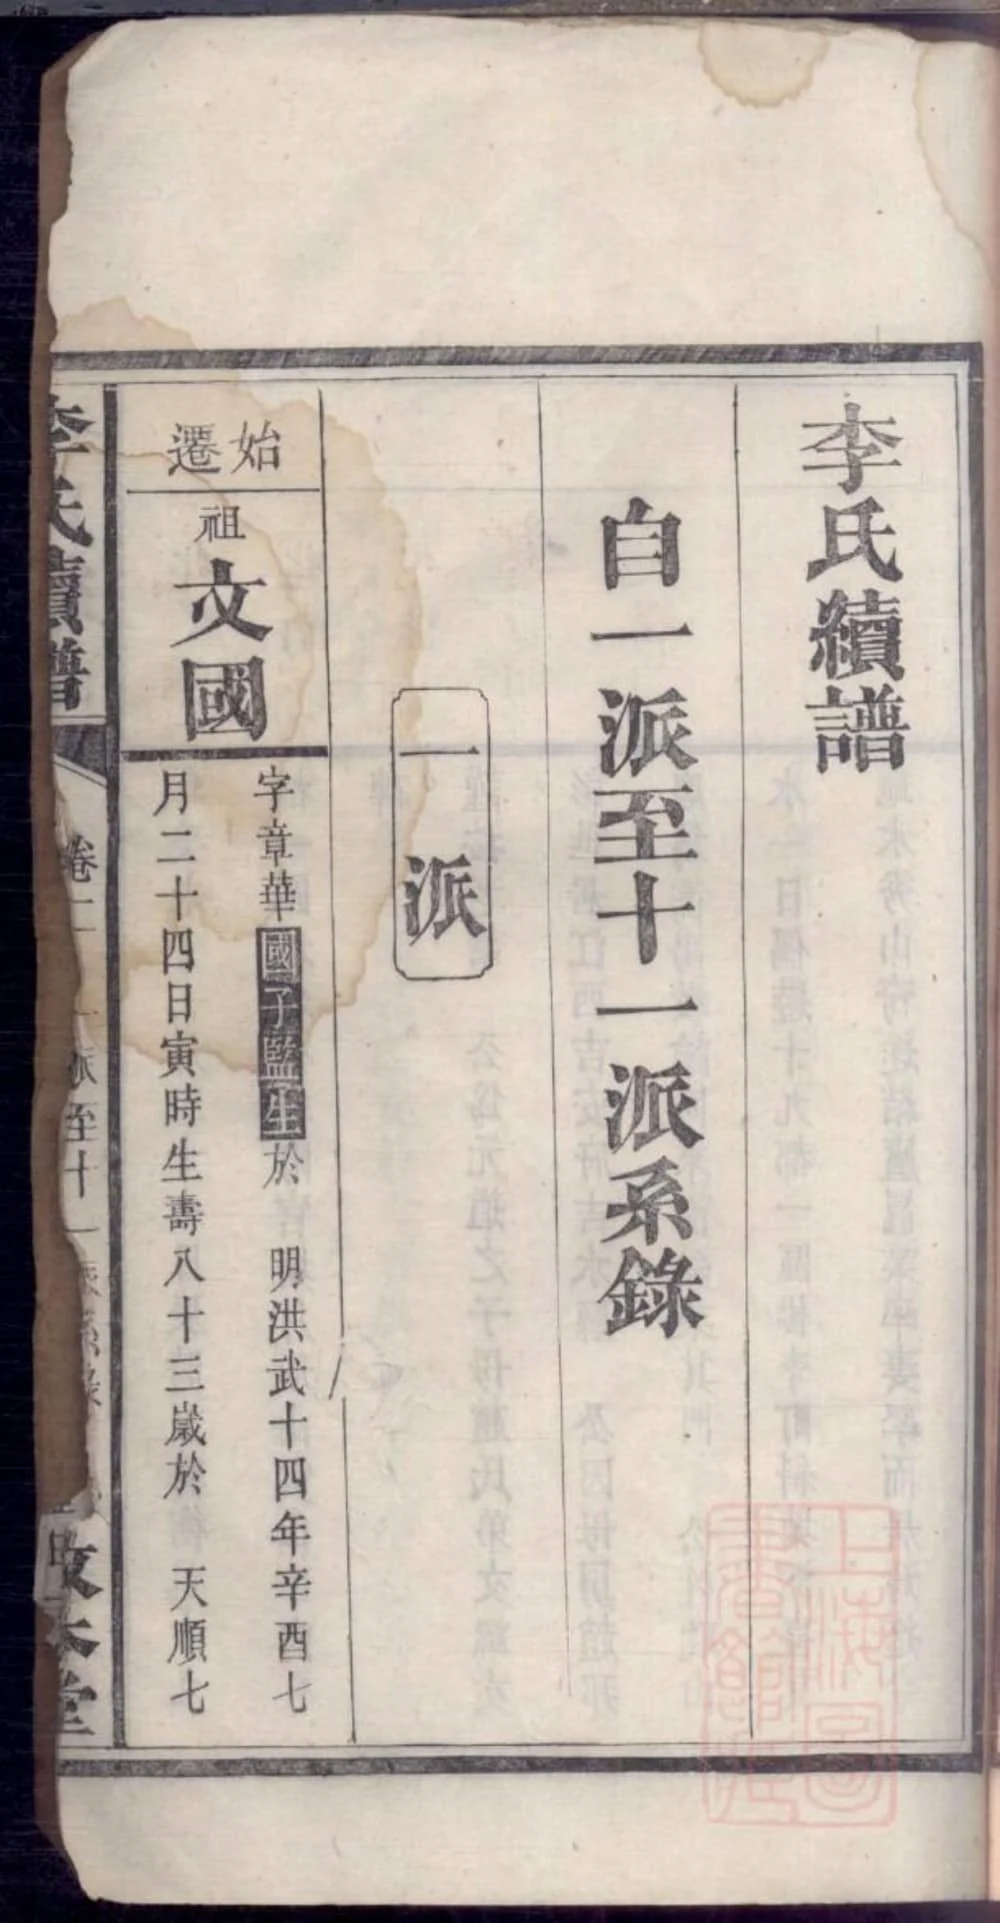 李氏續譜
自一派至十一派系錄
一派
始遷
祖文國
字章華國子監生於　明洪武十四年辛酉七
月二十四日寅時生壽八十三歲於　天順七
李氏續譜
卷
一派至十一派系錄
敦本堂
上海圖書館藏